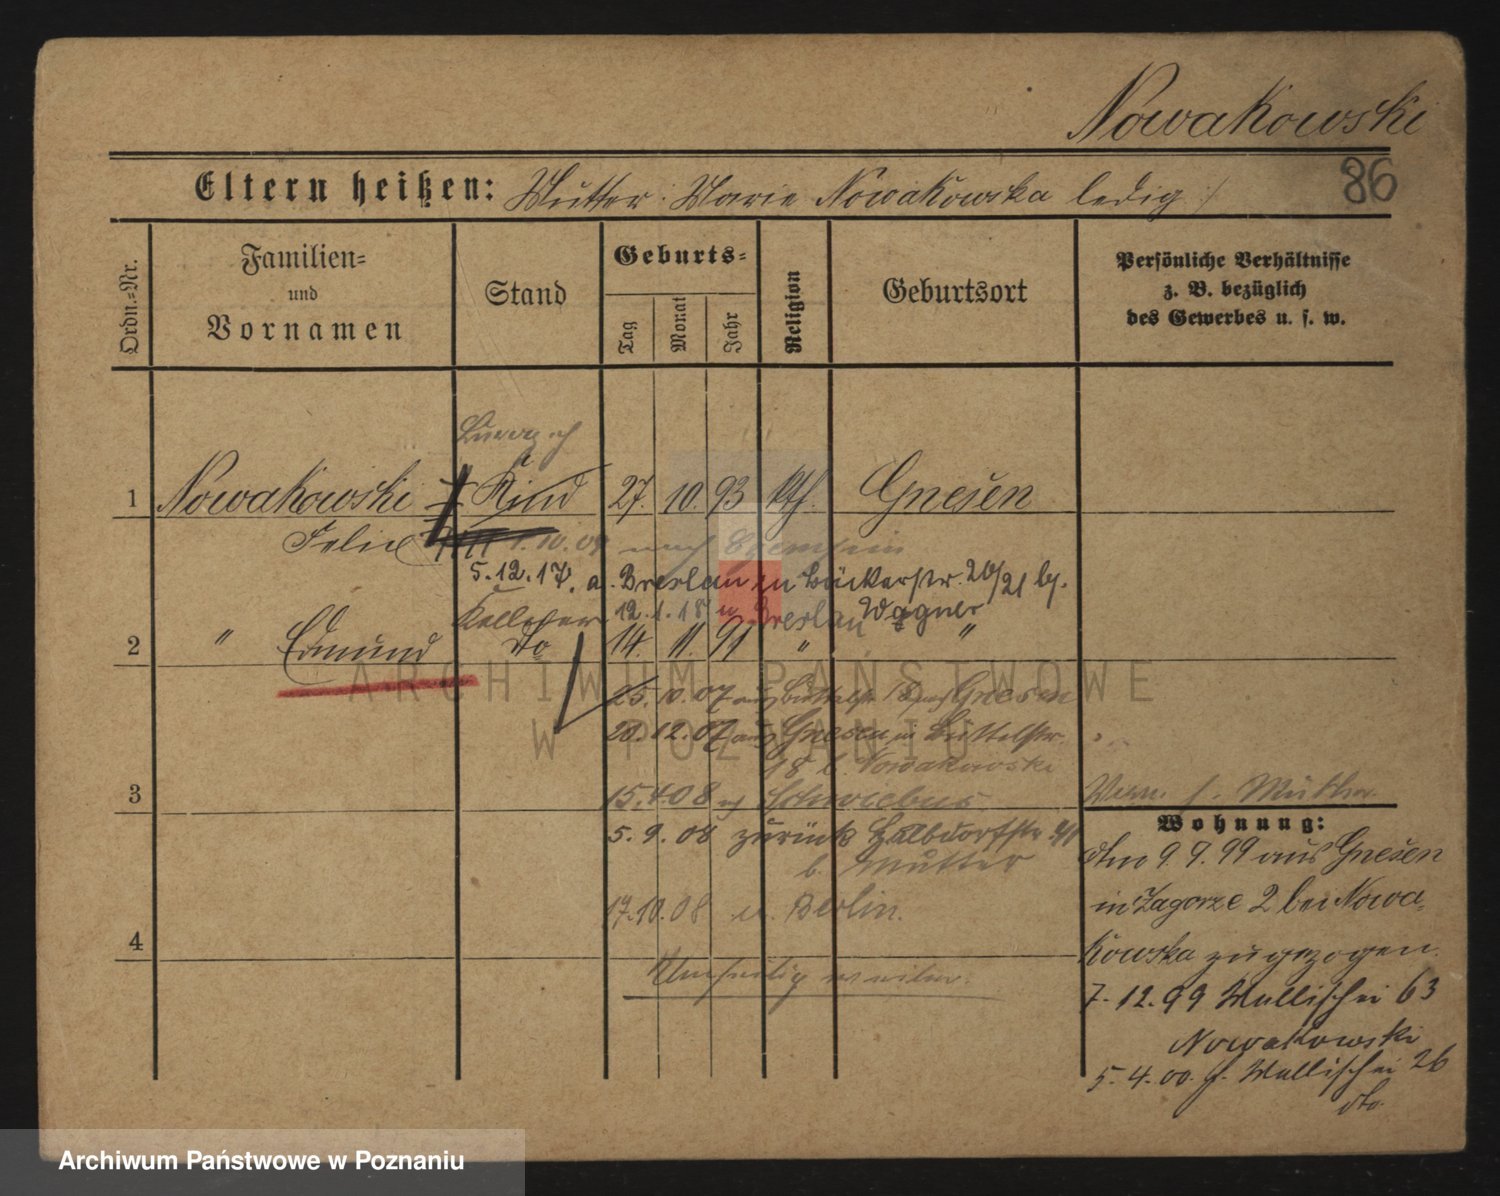 Nowakowski
86
Eltern heißen: Mutter: Marie Nowakowska ledig
Ordn.-Nr.
Familien-
und
Vornamen
Stand
Geburts-
Tag
Monat
Jahr
Religion
Geburtsort
Persönliche Verhältnisse
z. B. bezüglich
des Gewerbes u. s. w.
1 Nowakowski Kind 27. 10. 93 kth. Gnesen
Felix 1.10.09 nach
5.12.17. a. Breslau zu Bäckerstr. 20/21 b.
Kellner 12.1.18 n. Breslau Wagner
2 " Edmund dto 14. 11. 91 " "
25.10.07 Gnesen
21.12.07 aus Gnesen in Büttelstr.
18 b. Nowakowski
3 15.4.08 n. Schwiebus
5.9.08 zurück Halbdorfstr.
b. Mutter
17.10.08 n. Berlin.
4
Verm. f. Mutter
Wohnung:
Am 9.7.99 aus Gnesen
in Zagorze 2 bei Nowa-
kowska zugezogen.
7.12.99 Wallischei 63
Nowakowski
5.4.00. Wallischei 26
dto.
ARCHIWUM PAŃSTWOWE
W POZNANIU
Archiwum Państwowe w Poznaniu